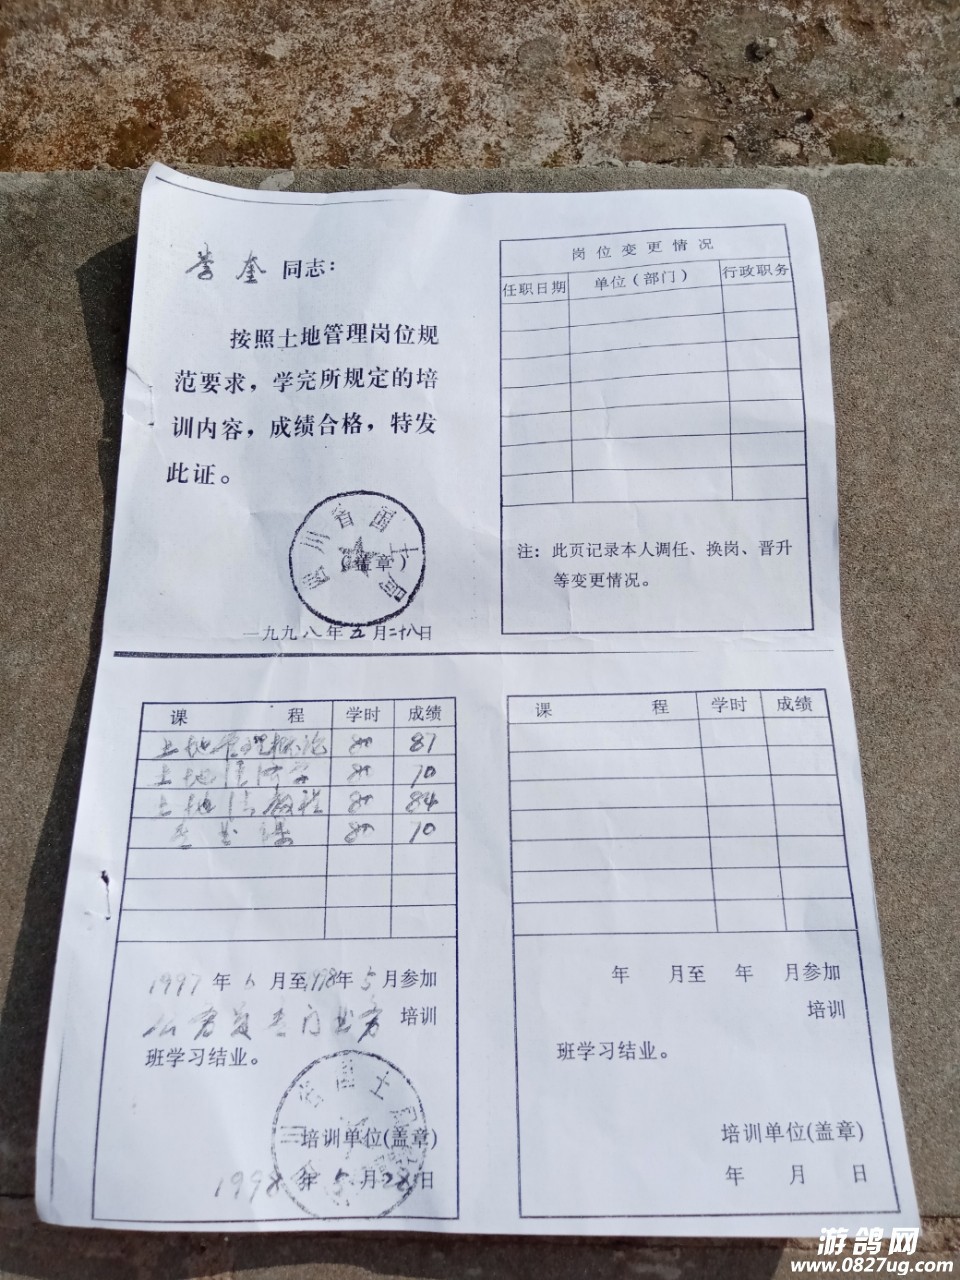 李奎 同志：
按照土地管理岗位规
范要求，学完所规定的培
训内容，成绩合格，特发
此证。
四川省国土局
（盖章）
一九九八年五月二十八日
岗位变更情况
任职日期 单位（部门） 行政职务
注：此页记录本人调任、换岗、晋升
等变更情况。
课 程 学时 成绩
土地管理概论 80 87
土地经济学 80 70
土地法教程 80 84
专业课 80 70
1997年6月至1998年5月参加
公务员专门业务 培训
班学习结业。
培训单位(盖章)
1998年5月28日
课 程 学时 成绩
年 月至 年 月参加
培训
班学习结业。
培训单位(盖章)
年 月 日
游鸽网
www.0827ug.com